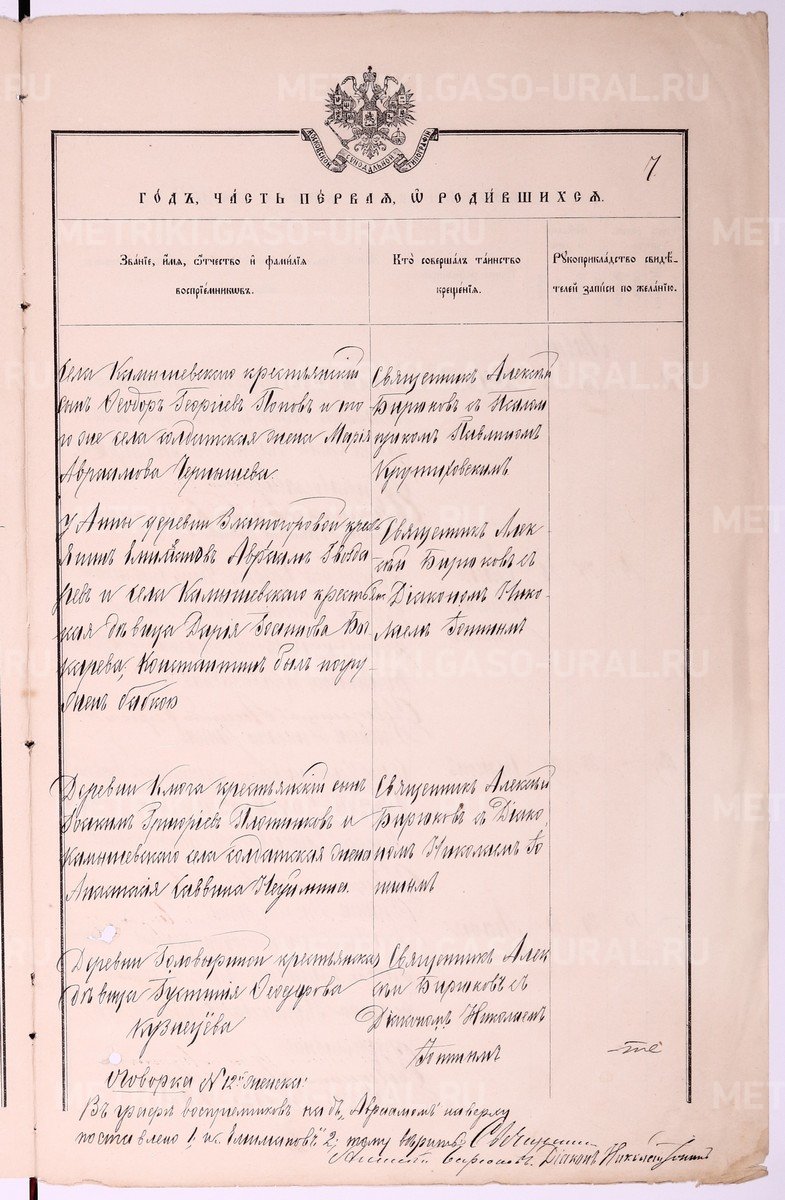 7
ГОДЪ, ЧАСТЬ ПЕРВАЯ, Ѡ РОДИВШИХСЯ.
Званіе, имя, Ѻтчество и фамилія
воспріемникѡвъ.
Кто совершалъ таинство
крещенія.
Рукоприкладство свидѣ-
телей записи по желанію.
села Камышевскаго крестьянскій
сынъ Ѳеодоръ Георгіевъ Поповъ и того
же села солдатская жена Марія
Авраамова Чернышева.
Священникъ Алексѣй
Бирюковъ съ Псалом
щикомъ Павлиномъ
Крутиховскимъ
У Анны деревни
Авраамъ
и села Камышевскаго крестьян
ская дѣвица Дарія
Константинъ былъ погру
женъ бабкою
Священникъ Алек
сѣй Бирюковъ съ
Діакономъ Нико
лаемъ
Деревни Ключа крестьянскій сынъ
Іоакимъ Григоріевъ Плотниковъ и
Камышевскаго села солдатская жена
Анастасія Саввина
Священникъ Алексѣй
Бирюковъ съ Діако
номъ Николаемъ
Деревни Головыриной крестьянская
дѣвица Іустинія Ѳеодорова
Кузнецова
Священникъ Алек
сѣй Бирюковъ съ
Діакономъ Николаемъ
Оговорка № 12 женска:
Въ графѣ воспріемниковъ надъ „Авраамомъ" наверху
поставлено 1, и 2, тому вѣрить. Священникъ
Алексѣй Бирюковъ. Діаконъ Николай